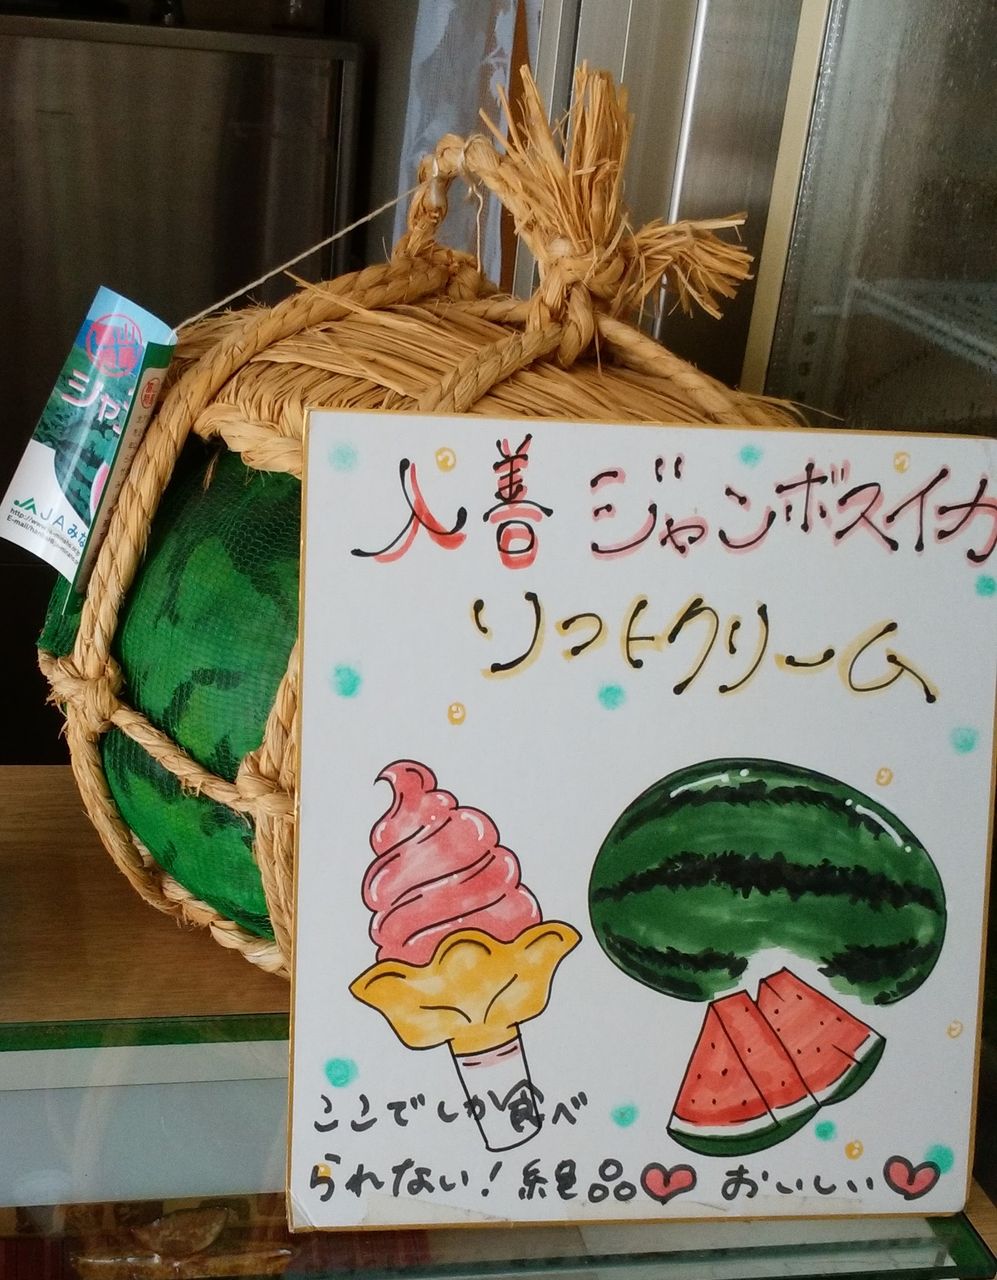 入善 ジャンボスイカ
ソフトクリーム
ここでしか食べ
られない！絶品 おいしい
ジャン
JAみな